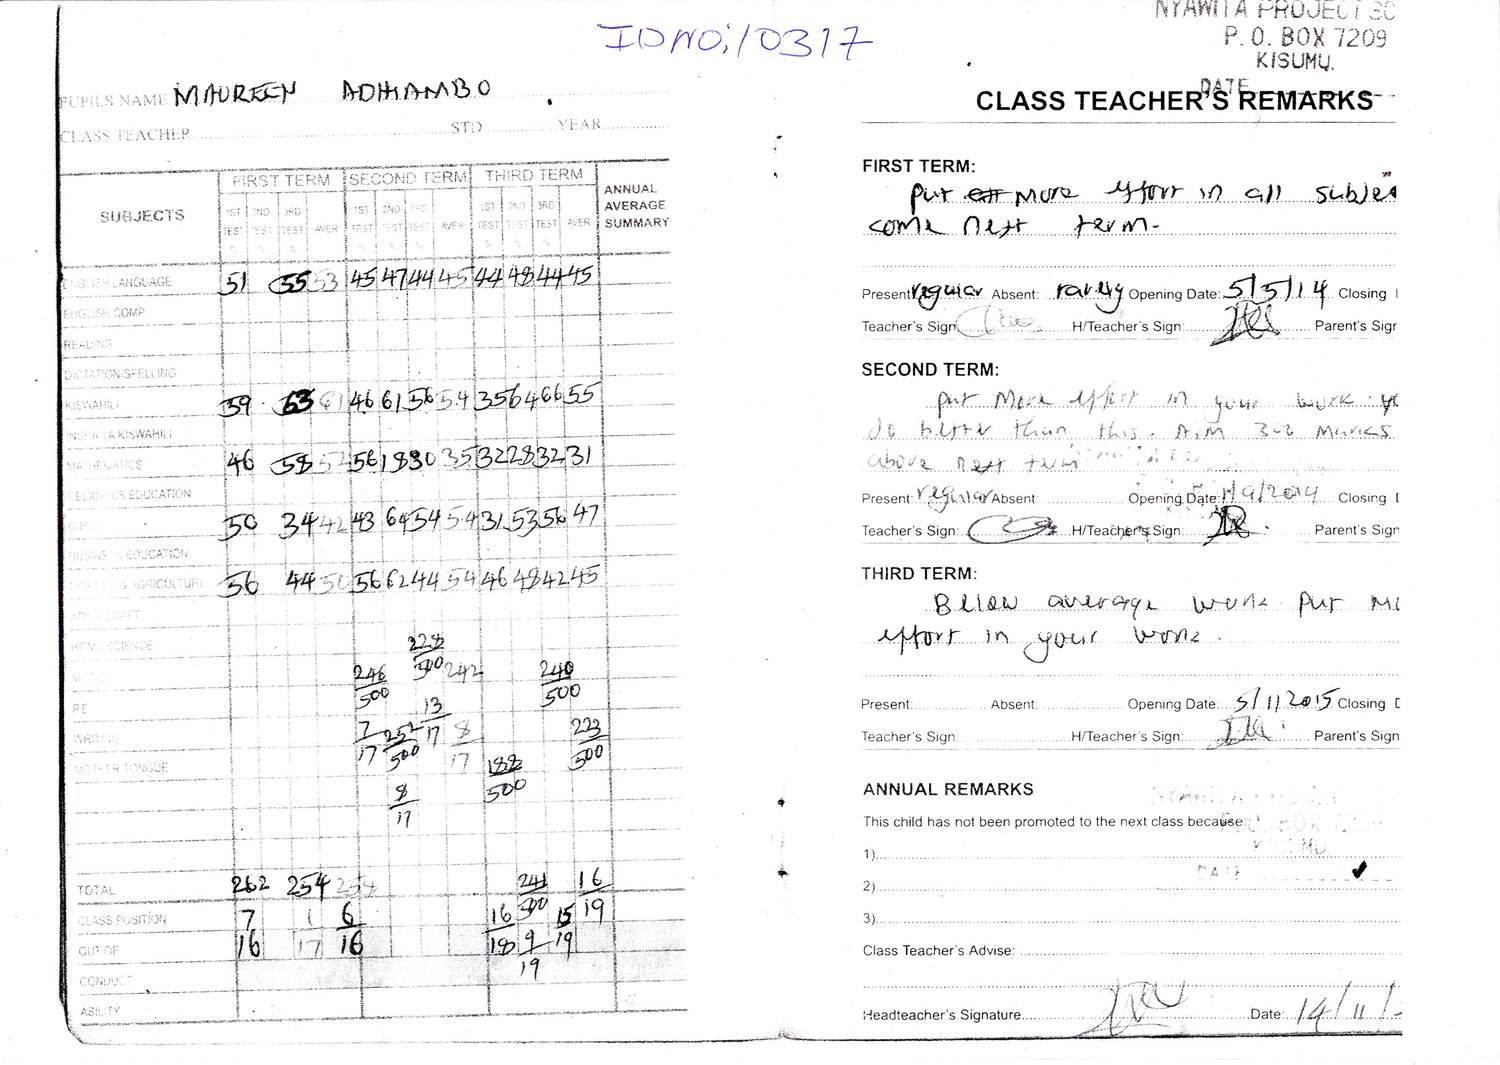 ID NO; 10317
PUPILS NAME MAUREEN ADHIAMBO
CLASS TEACHER STD YEAR
SUBJECTS FIRST TERM SECOND TERM THIRD TERM ANNUAL AVERAGE SUMMARY
1ST TEST 2ND TEST 3RD TEST AVER 1ST TEST 2ND TEST 3RD TEST AVER 1ST TEST 2ND TEST 3RD TEST AVER
% % % % % % % %
ENGLISH LANGUAGE 51 55 53 45 47 44 45 44 48 44 45
ENGLISH COMP
READING
DICTATION/SPELLING
KISWAHILI 59 63 61 46 61 56 54 35 64 66 55
INSHA YA KISWAHILI
MATHEMATICS 46 58 52 56 18 30 35 32 28 32 31
RELIGIOUS EDUCATION
50 34 42 43 64 54 54 31 53 56 47
BUSINESS EDUCATION
AGRICULTURE 56 44 50 56 62 44 54 46 48 42 45
ART & CRAFT
HOME SCIENCE 228
MUSIC 246/500 500 242 240/500
P.E 13
WRITING 7/17 252/500 17 8/17 223/500
MOTHER TONGUE 188/500
8/17
TOTAL 262 254 254 241/500 16
CLASS POSITION 7 1 6 16 15 19
OUT OF 16 17 16 18 9 19
CONDUCT 19
ABILITY
NYAWITA PROJECT SC
P.O. BOX 7209
KISUMU.
DATE
CLASS TEACHER'S REMARKS
FIRST TERM:
Put more effort in all subjec
come next term.
Present: regular Absent: rarely Opening Date: 5/5/14 Closing
Teacher's Sign H/Teacher's Sign: Parent's Sign
SECOND TERM:
put more effort in your work
do better than this. Aim 300 marks
above next term
Present: regular Absent: Opening Date: 1/9/2014 Closing
Teacher's Sign: H/Teacher's Sign: Parent's Sign
THIRD TERM:
Below average work put
effort in your work.
Present: Absent: Opening Date: 5/1/2015 Closing
Teacher's Sign: H/Teacher's Sign: Parent's Sign
ANNUAL REMARKS
This child has not been promoted to the next class because
KISUMU
1)
DATE
2)
3)
Class Teacher's Advise:
Headteacher's Signature Date: 14/11/